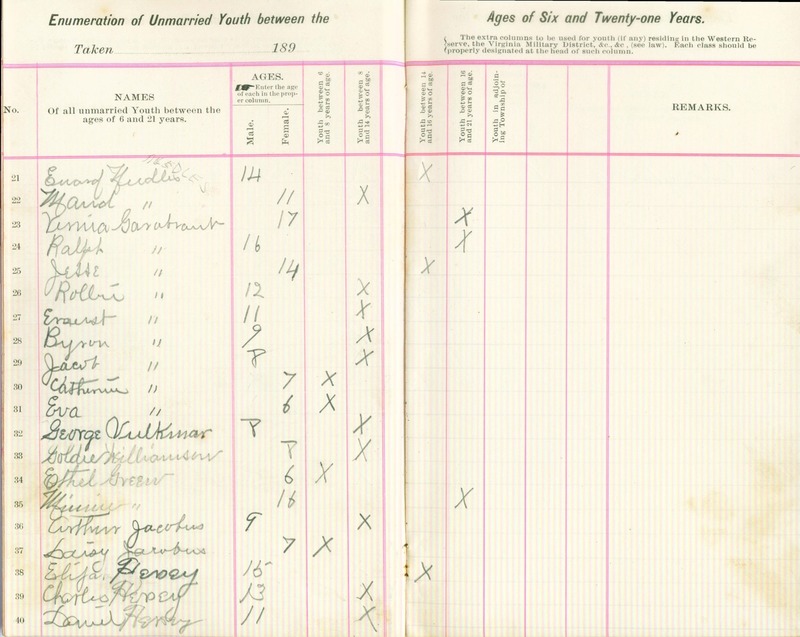 Enumeration of Unmarried Youth between the Ages of Six and Twenty-one Years.
Taken 189
The extra columns to be used for youth (if any) residing in the Western Re-
serve, the Virginia Military District, &c., &c., (see law). Each class should be
properly designated at the head of such column.
No.
NAMES
Of all unmarried Youth between the
ages of 6 and 21 years.
AGES.
Enter the age
of each in the prop-
er column.
Male.
Female.
Youth between 6
and 8 years of age.
Youth between 8
and 14 years of age.
Youth between 14
and 16 years of age.
Youth between 16
and 21 years of age.
Youth in adjoin-
ing Township of
REMARKS.
21 14 X
22 Maud " 11 X
23 17 X
24 Ralph " 16 X
25 Jesse " 14 X
26 Rollin " 12 X
27 Ernest " 11 X
28 Byron " 9 X
29 Jacob " 8 X
30 Catherine " 7 X
31 Eva " 6 X
32 George Vulkmar 8 X
33 Goldie Williamson 8 X
34 Ethel Green 6 X
35 Minnie " 16 X
36 Arthur Jacobus 9 X
37 Daisy Jacobus 7 X
38 Eliza Hersey 15 X
39 Charles Hersey 13 X
40 Daniel Hersey 11 X